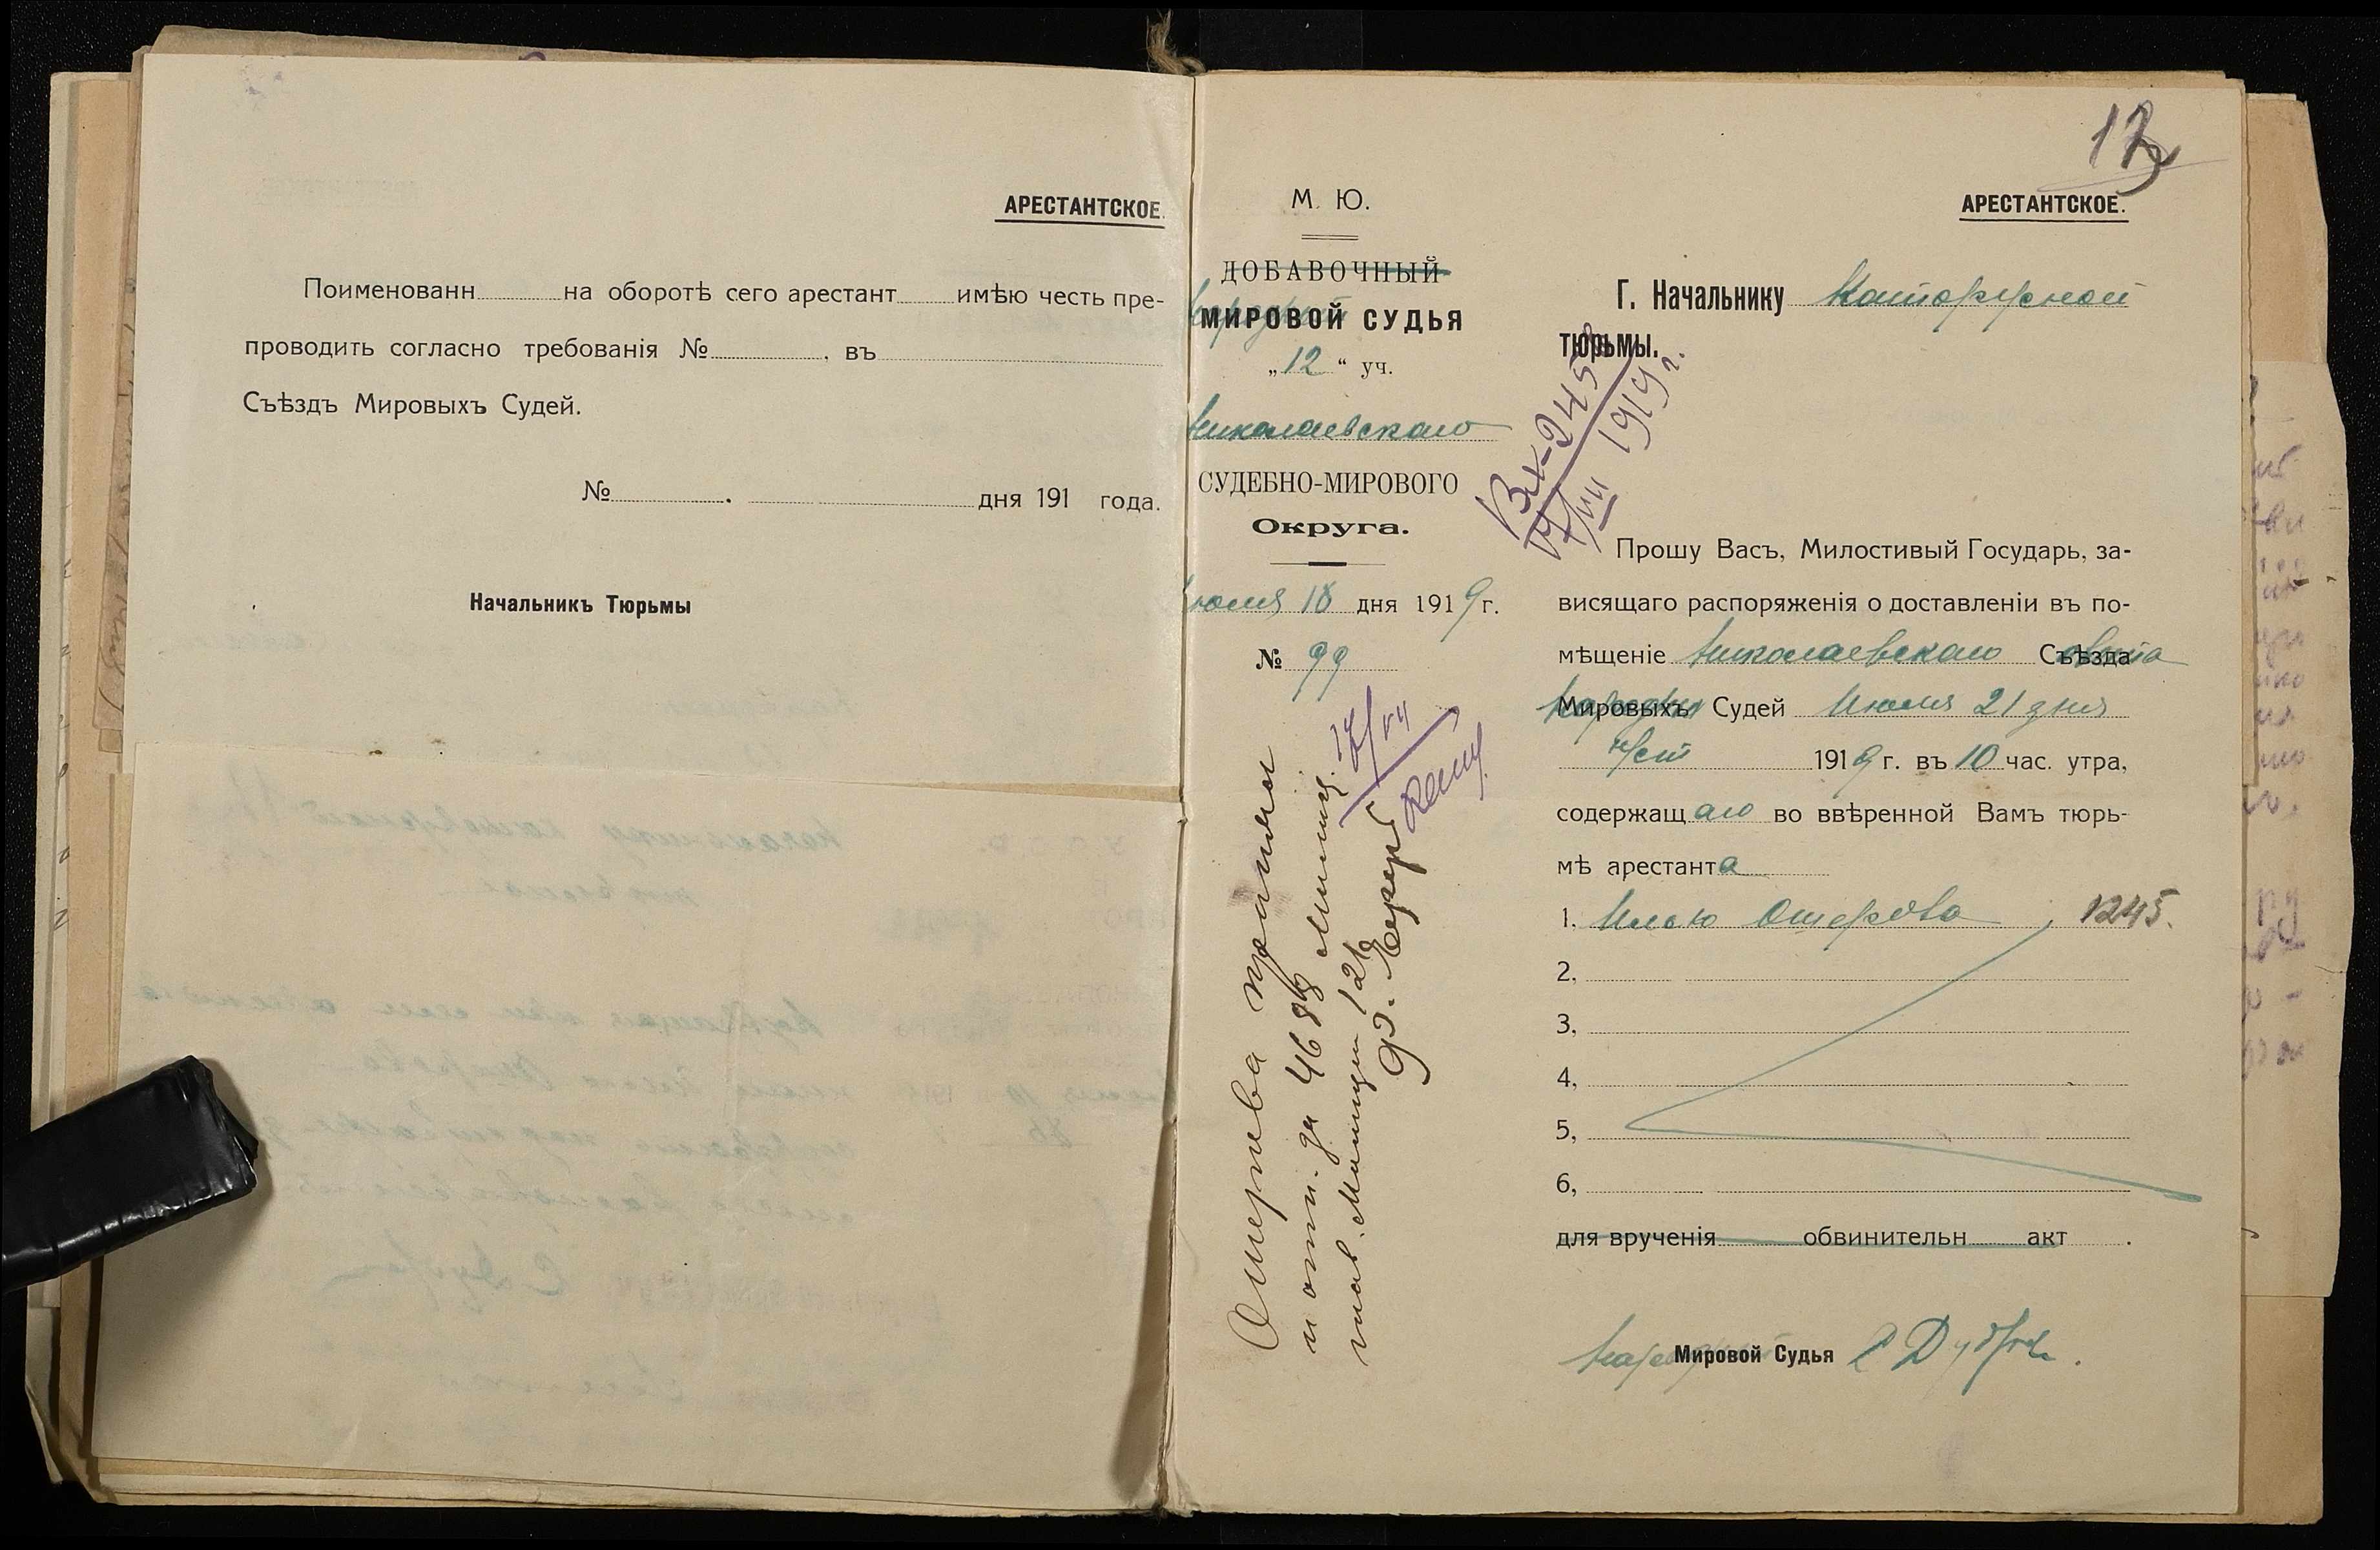 АРЕСТАНТСКОЕ.
Поименованн на оборотѣ сего арестант имѣю честь пре-
проводить согласно требованія № , въ
Съѣздъ Мировыхъ Судей.
№ . дня 191 года.
Начальникъ Тюрьмы
М. Ю.
ДОБАВОЧНЫЙ
МИРОВОЙ СУДЬЯ
„12“ уч.
Николаевскаго
СУДЕБНО-МИРОВОГО
Округа.
Июля 18 дня 1919 г.
№ 99
Ошерова приняли
и отп. за 4688 Милиц.
12
АРЕСТАНТСКОЕ.
Г. Начальнику Каторжной
ТЮРЬМЫ.
Вх-2458
1919 г.
Прошу Васъ, Милостивый Государь, за-
висящаго распоряженія о доставленіи въ по-
мѣщеніе Николаевскаго Съѣзда
Мировыхъ Судей Июля 21 дня
1919 г. въ 10 час. утра,
содержащаго во ввѣренной Вамъ тюрь-
мѣ арестанта
1, Илью Ошерова 1245.
2,
3,
4,
5,
6,
для врученія обвинительн акт .
Мировой Судья